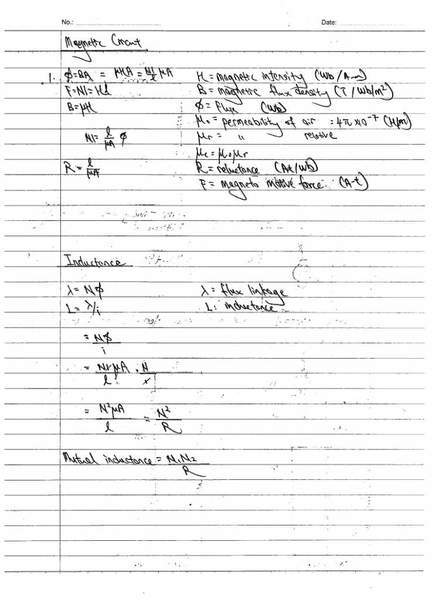 No.: Date:
Magnetic Circuit
1. φ=BA = μHA = NI/l μA H = magnetic intensity (Wb/A-m)
F=NI=Hl B = magnetic flux density (T/Wb/m²)
B=μH φ = Flux (Wb)
μ₀ = permeability of air = 4π×10⁻⁷ (H/m)
NI = l/μA φ μr = " relative
μ₀ = μ₀μr
R = l/μA R = reluctance (At/Wb)
F = magneto motive force (A-t)
Inductance
λ = Nφ λ = flux linkage
L = λ/i L: inductance
= Nφ/i
= NI μA/l · N/I
= N²μA/l = N²/R
Mutual inductance = N₁N₂/R